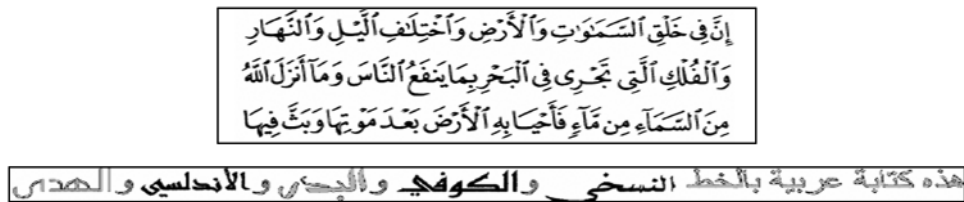 إِنَّ فِي خَلْقِ ٱلسَّمَٰوَٰتِ وَٱلْأَرْضِ وَٱخْتِلَٰفِ ٱلَّيْلِ وَٱلنَّهَارِ
وَٱلْفُلْكِ ٱلَّتِي تَجْرِى فِى ٱلْبَحْرِ بِمَا يَنفَعُ ٱلنَّاسَ وَمَآ أَنزَلَ ٱللَّهُ
مِنَ ٱلسَّمَآءِ مِن مَّآءٍ فَأَحْيَا بِهِ ٱلْأَرْضَ بَعْدَ مَوْتِهَا وَبَثَّ فِيهَا
هذه كتابة عربية بالخط النسخي والكوفي و و الأندلسي و